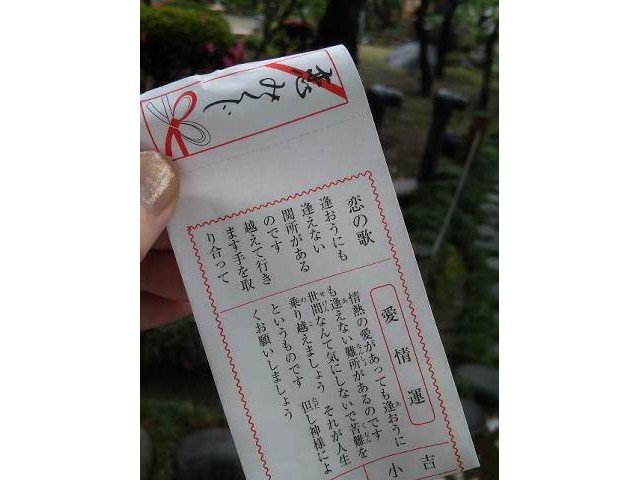 恋みくじ
恋の歌
逢おうにも
逢えない
関所がある
のです
越えて行き
ます手を取
り合って
愛情運
情熱の愛があっても逢おうに
も逢えない難所があるのです
世間なんて気にしないで苦難を
乗り越えましょう それが人生
というものです 但し神様によ
くお願いしましょう
小吉